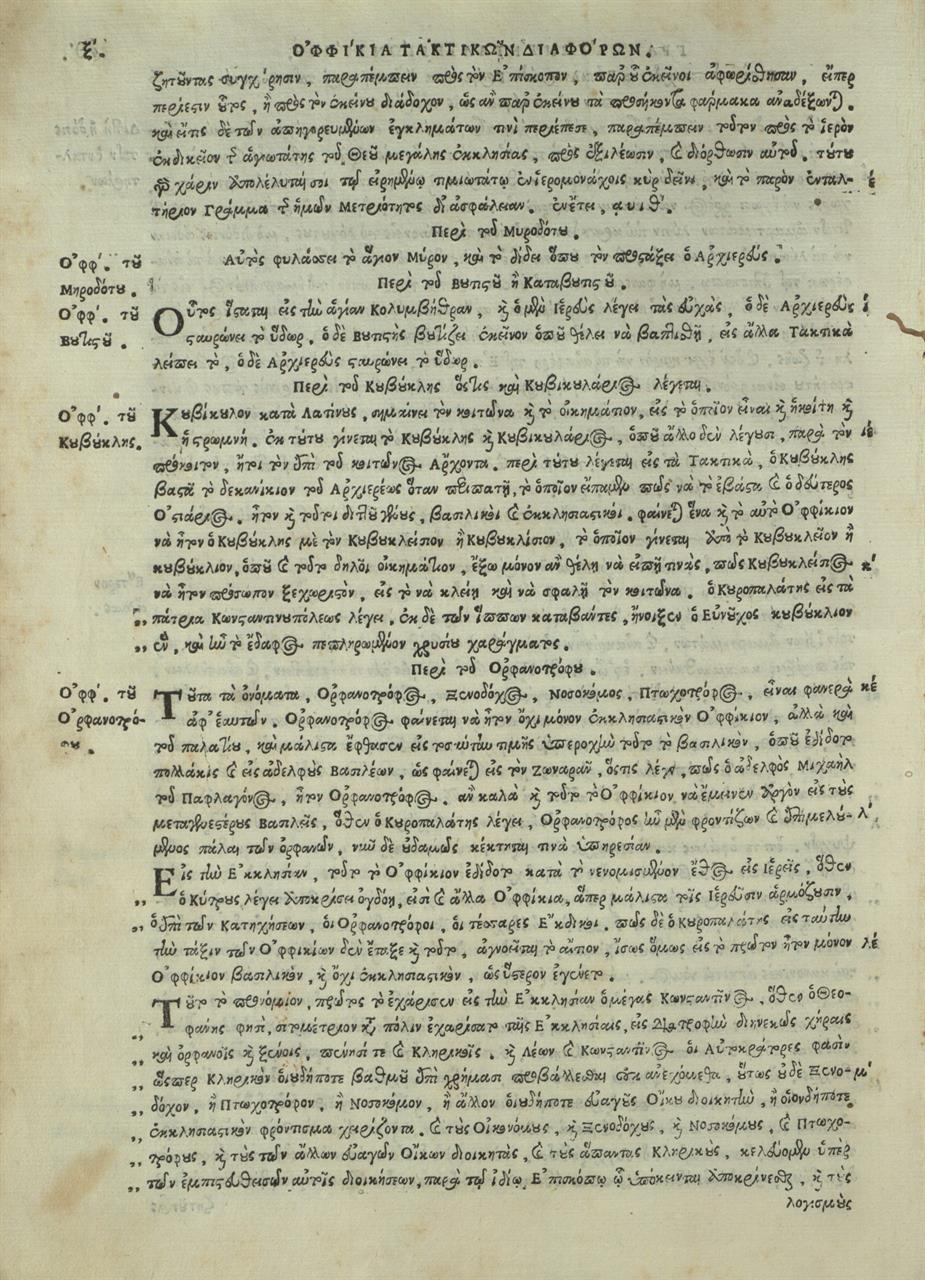 ξ.
ΟΦΦΙΚΙΑ ΤΑΚΤΙΚΩΝ ΔΙΑΦΟΡΩΝ.
ζητοῦντας συγχώρησιν, παραπέμπειν πρὸς τὸν Ἐπίσκοπον, παρ' οὗ ἐκεῖνοι ἀφωρίσθησαν, εἴπερ
περίεστιν οὗτος, ἢ πρὸς τὸν ἐκείνου διάδοχον, ὡς ἂν παρ' ἐκείνου τὰ προσήκοντα φάρμακα ἀναδέξωνται.
καὶ εἴτις δὲ τῶν ἀπηγορευμένων ἐγκλημάτων τινὶ περιέπεσε, παραπέμπειν τοῦτον πρὸς τὸ ἱερὸν
ἐκδικεῖον τῆς ἁγιωτάτης τοῦ Θεοῦ μεγάλης ἐκκλησίας, πρὸς ἐξιλέωσιν, καὶ διόρθωσιν αὐτοῦ. τούτου
γὰρ χάριν ἀπολέλυταί σοι τῷ εἰρημένῳ τιμιωτάτῳ ἐν ἱερομονάχοις κὺρ δεῖνι, καὶ τὸ παρὸν ἐνταλ-
τήριον Γράμμα τῆς ἡμῶν Μετριότητος δι' ἀσφάλειαν. ἐν ἔτει, αυιθ'.
Περὶ τοῦ Μυροδότου.
Ὀφφ. τοῦ
Μηροδότου.
Αὐτὸς φυλάσσει τὸ ἅγιον Μύρον, καὶ τὸ δίδει ὅπου τὸν προστάξει ὁ Ἀρχιερεύς.
Περὶ τοῦ Βουτιστοῦ ἢ Καταβουτιστοῦ.
Ὀφφ. τοῦ
Βουτιστοῦ.
Οὗτος ἵσταται εἰς τὴν ἁγίαν Κολυμβήθραν, καὶ ὁ μὲν Ἱερεὺς λέγει τὰς εὐχὰς, ὁ δὲ Ἀρχιερεὺς
σταυρώνει τὸ ὕδωρ, ὁ δὲ Βουτιστὴς βουτίζει ἐκεῖνον ὁποῦ θέλει νὰ βαπτισθῇ, εἰς ἄλλα Τακτικὰ
λείπει τὸ, ὁ δὲ Ἀρχιερεὺς σταυρώνει τὸ ὕδωρ.
Περὶ τοῦ Κουβούκλης ὅστις καὶ Κουβικουλάριος λέγεται.
Ὀφφ. τοῦ
Κουβούκλης.
Κουβίκουλον κατὰ Λατίνους, σημαίνει τὸν κοιτῶνα καὶ τὸ οἰκημάτιον, εἰς τὸ ὁποῖον εἶναι καὶ ἡ κοίτη καὶ
ἡ στρωμνή. ἐκ τούτου γίνεται τὸ Κουβούκλης καὶ Κουβικουλάριος, ὁποῦ ἄλλο δὲν λέγουσι, παρὰ τὸν
πρόκοιτον, ἤτοι τὸν ἐπὶ τοῦ κοιτῶνος Ἄρχοντα. περὶ τούτου λέγεται εἰς τὰ Τακτικὰ, ὁ Κουβούκλης
βαστᾷ τὸ δεκανίκιον τοῦ Ἀρχιερέως ὅταν περιπατῇ, τὸ ὁποῖον εἴπαμεν πῶς νὰ τὸ ἐβάστα καὶ ὁ δεύτερος
Ὀστιάριος. ἦτον καὶ τοῦτοι διπλοῦ γένους, βασιλικοὶ καὶ ἐκκλησιαστικοί. φαίνεται ἕνα καὶ τὸ αὐτὸ Ὀφφίκιον
νὰ ἦτον ὁ Κουβούκλης μὲ τὸν Κουβουκλείσιον ἢ Κουβουκλίσιον, τὸ ὁποῖον γίνεται ἀπὸ τὸ Κουβουκλεῖον ἢ
κουβούκλιον, ὁποῦ καὶ τοῦτο δηλοῖ οἰκημάτιον, ἔξω μόνον ἂν θέλῃ νὰ εἰπῇ τινὰς, πῶς Κουβουκλείσιος
νὰ ἦτον πρόσωπον ξεχωριστὸν, εἰς τὸ νὰ κλείῃ καὶ νὰ σφαλῇ τὸν κοιτῶνα. ὁ Κυροπαλάτης εἰς τὰ
πάτρια Κωνσταντινουπόλεως λέγει, ἐκ δὲ τῶν ἵππων καταβάντες, ἤνοιξεν ὁ Εὐνοῦχος κουβούκλιον
ἓν, καὶ ἦν τὸ ἔδαφος πεπληρωμένον χρυσίου χαράγματος.
Περὶ τοῦ Ὀρφανοτρόφου.
Ὀφφ. τοῦ
Ὀρφανοτρό-
φου.
Τοῦτα τὰ ὀνόματα, Ὀρφανοτρόφος, Ξενοδόχος, Νοσοκόμος, Πτωχοτρόφος, εἶναι φανερὰ
ἀφ' ἑαυτῶν. Ὀρφανοτρόφος φαίνεται νὰ ἦτον ὄχι μόνον ἐκκλησιαστικὸν Ὀφφίκιον, ἀλλὰ καὶ
τοῦ παλατίου, καὶ μάλιστα ἔφθασεν εἰς τοσαύτην τιμῆς ὑπεροχὴν τοῦτο τὸ βασιλικὸν, ὁποῦ ἐδίδοτο
πολλάκις καὶ εἰς ἀδελφοὺς Βασιλέων, ὡς φαίνεται εἰς τὸν Ζωναρᾶν, ὅστις λέγει, πῶς ὁ ἀδελφὸς Μιχαὴλ
τοῦ Παφλαγόνος, ἦτον Ὀρφανοτρόφος. ἂν καλὰ καὶ τοῦτο τὸ Ὀφφίκιον νὰ ἔμεινεν ἀργὸν εἰς τοὺς
μεταγενεστέρους Βασιλεῖς, ὅθεν ὁ Κυροπαλάτης λέγει, Ὀρφανοτρόφος ἦν μὲν φροντίζων καὶ ἐπιμελού-
μενος πάλαι τῶν ὀρφανῶν, νῦν δὲ οὐδαμῶς κέκτηται τινὰ ὑπηρεσίαν.
Εἰς τὴν Ἐκκλησίαν, τοῦτο τὸ Ὀφφίκιον ἐδίδοτο κατὰ τὸ νενομισμένον ἔθος εἰς Ἱερεῖς, ὅθεν
ὁ Κύτρους λέγει Ἀποκρίσει ὀγδόῃ, εἰσὶ καὶ ἄλλα Ὀφφίκια, ἅπερ μάλιστα τοῖς Ἱερεῦσιν ἁρμόζουσιν,
ὁ ἐπὶ τῶν Κατηχήσεων, οἱ Ὀρφανοτρόφοι, οἱ τέσσαρες Ἔκδικοι. πῶς δὲ ὁ Κυροπαλάτης εἰς ταύτην
τὴν τάξιν τῶν Ὀφφικίων δὲν ἔταξε καὶ τοῦτο, ἀγνοεῖται τὸ αἴτιον, ἴσως ὅμως εἰς τὸ πρῶτον ἦτον μόνον
Ὀφφίκιον βασιλικὸν, καὶ ὄχι ἐκκλησιαστικὸν, ὡς ὕστερον ἐγένετο.
Τοῦτο τὸ προνόμιον, πρῶτος τὸ ἐχάρισεν εἰς τὴν Ἐκκλησίαν ὁ μέγας Κωνσταντῖνος, ὅθεν ὁ Θεο-
φάνης φησὶ, σιτομέτριον κατὰ πόλιν ἐχαρίσατο ταῖς Ἐκκλησίαις, εἰς διατροφὴν διηνεκῶς χήραις
καὶ ὀρφανοῖς καὶ ξένοις, πένησί τε καὶ Κληρικοῖς. καὶ Λέων καὶ Κωνσταντῖνος οἱ Αὐτοκράτορες φασὶν
ὥσπερ Κληρικὸν οἱουδήποτε βαθμοῦ ἐπὶ χρήμασι προβάλλεσθαι οὐκ ἀνεχόμεθα, οὕτως οὐδὲ Ξενο-
δόχον, ἢ Πτωχοτρόφον, ἢ Νοσοκόμον, ἢ ἄλλον οἱουδήποτε εὐαγοῦς Οἴκου διοικητὴν, ἢ οἱονδήποτε
ἐκκλησιαστικὸν φρόντισμα χειρίζοντα. καὶ τοὺς Οἰκονόμους, καὶ Ξενοδόχους, καὶ Νοσοκόμους, καὶ Πτωχο-
τρόφους, καὶ τοὺς τῶν ἄλλων εὐαγῶν Οἴκων διοικητὰς, καὶ τοὺς ἅπαντας Κληρικοὺς, κελεύομεν ὑπὲρ
τῶν ἐμπιστευθεισῶν αὐτοῖς διοικήσεων, παρὰ τῷ ἰδίῳ Ἐπισκόπῳ ᾧ ὑπόκεινται ἀποκρίνεσθαι, καὶ τοὺς
λογισμοὺς